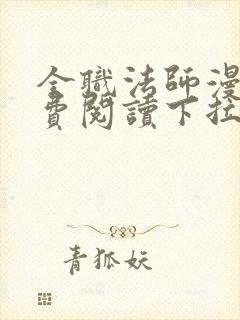 全職法師漫
費閱讀下拉
青狐妖